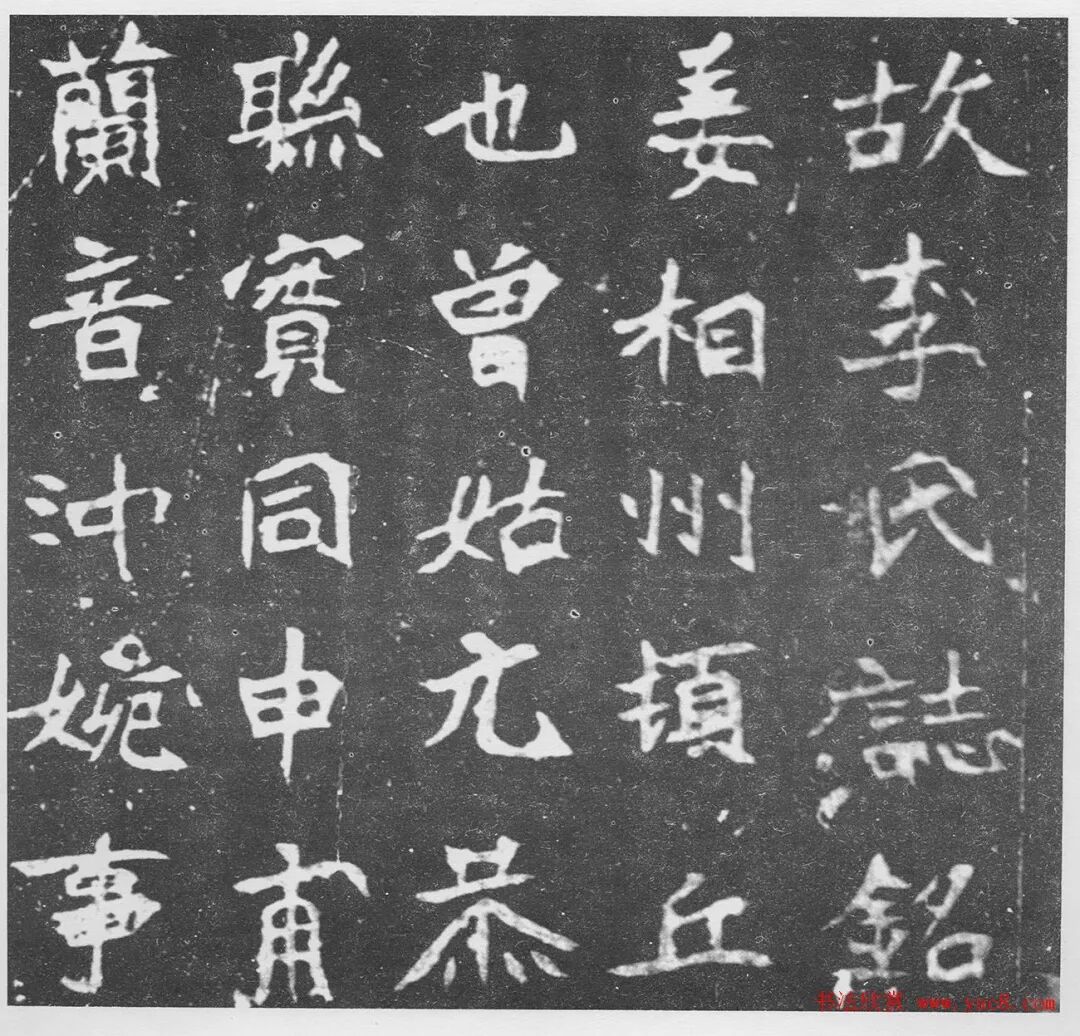 故李氏誌銘
姜相州頓丘
也曾姑尢恭
聮實同申甫
蘭音沖婉事
书法欣赏 www.yac8.com